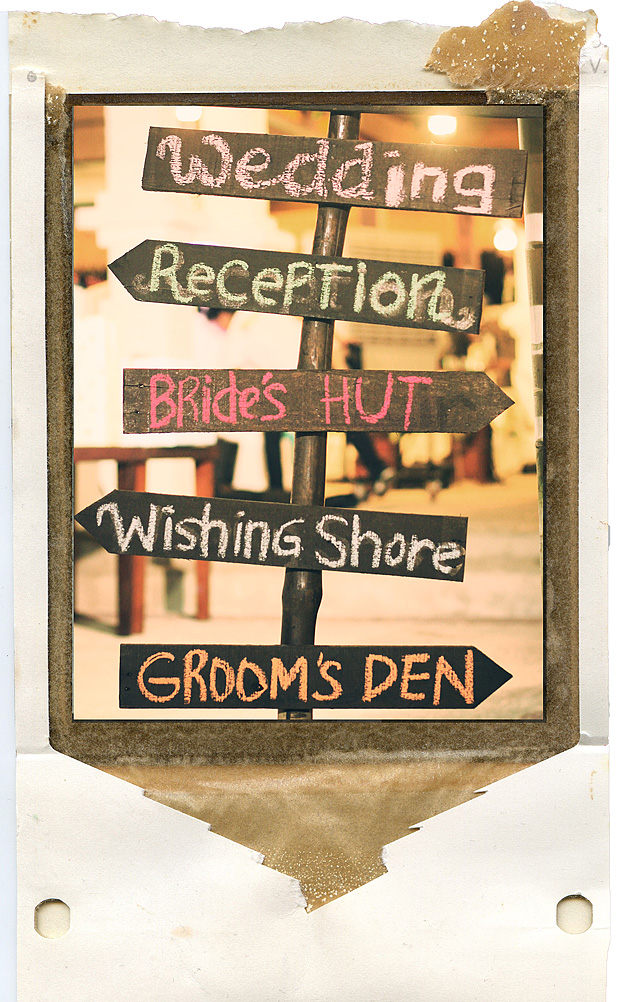 Wedding
Reception
BRide's HUT
Wishing Shore
GROOM'S DEN